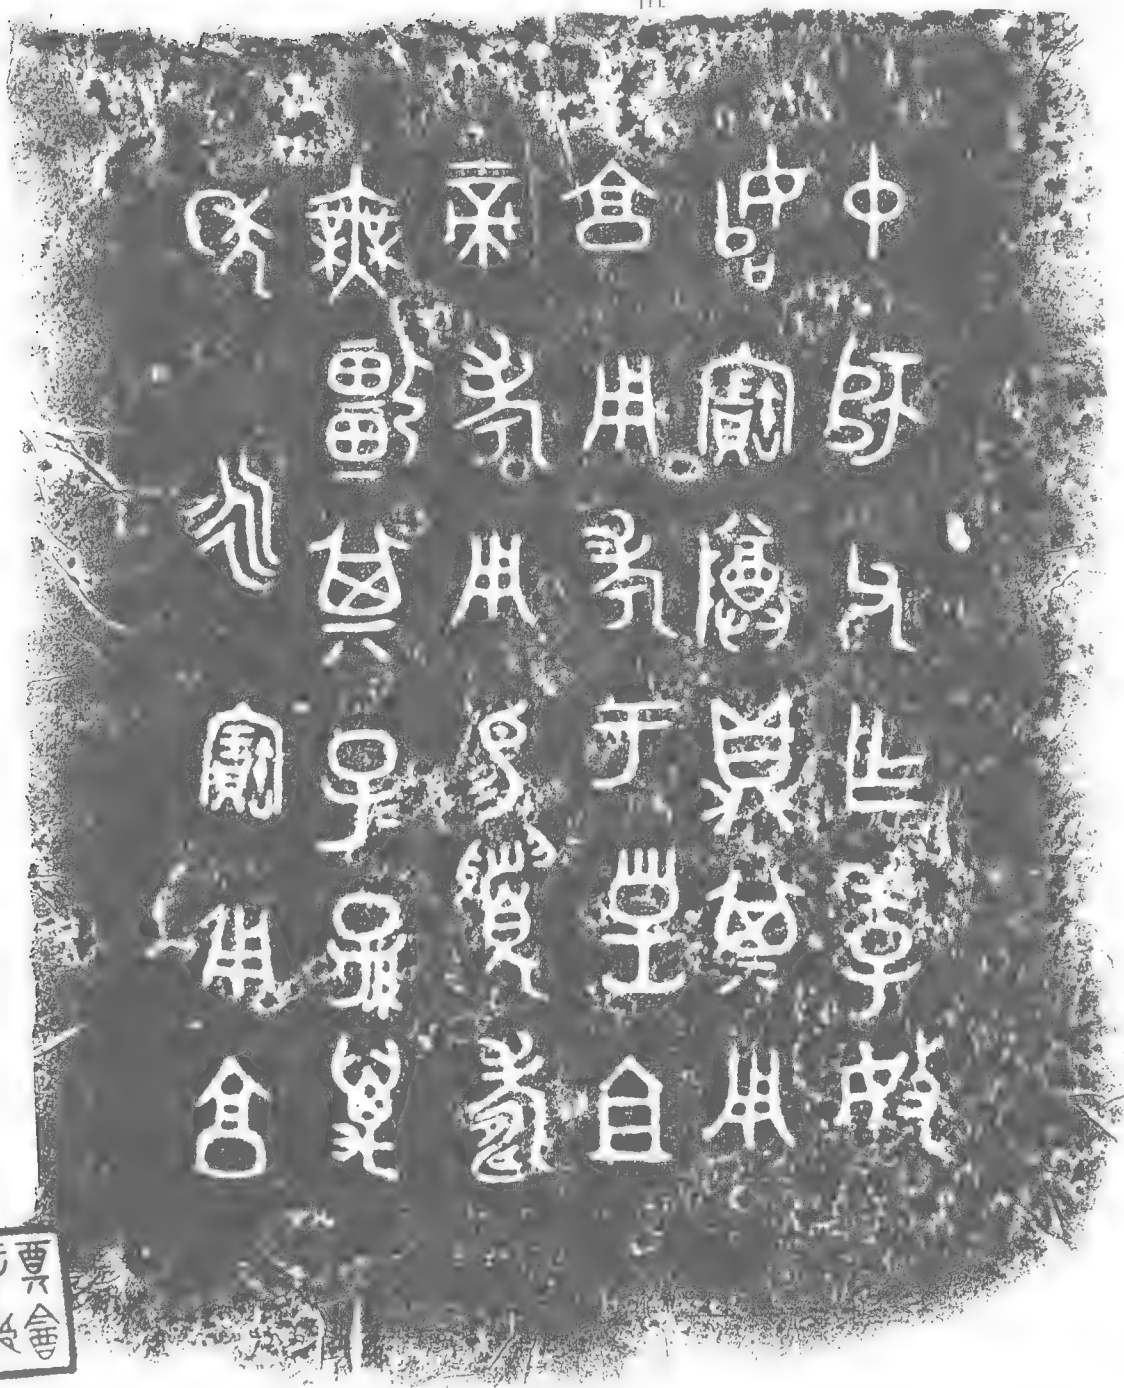 中師父乍季
始寶尊鼎其用
享用考于皇且
帝考用易眉壽
無彊其子孫萬
年永寶用享